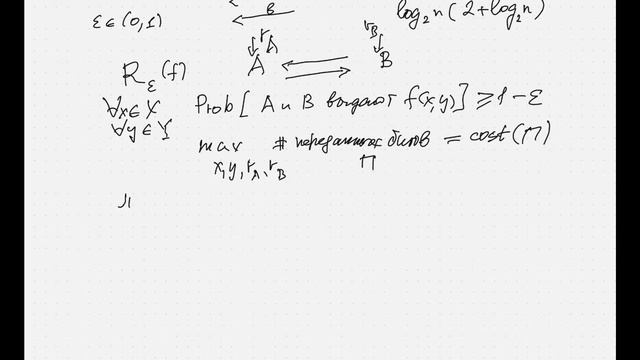 ε ∈ (0,1) B log₂n(2+log₂n)
r_A r_B
A B
R_ε(f)
∀x∈X Prob[A и B выдают f(x,y)] ≥ 1-ε
∀y∈Y
max # переданных битов = cost(Π)
x,y,r_A,r_B Π